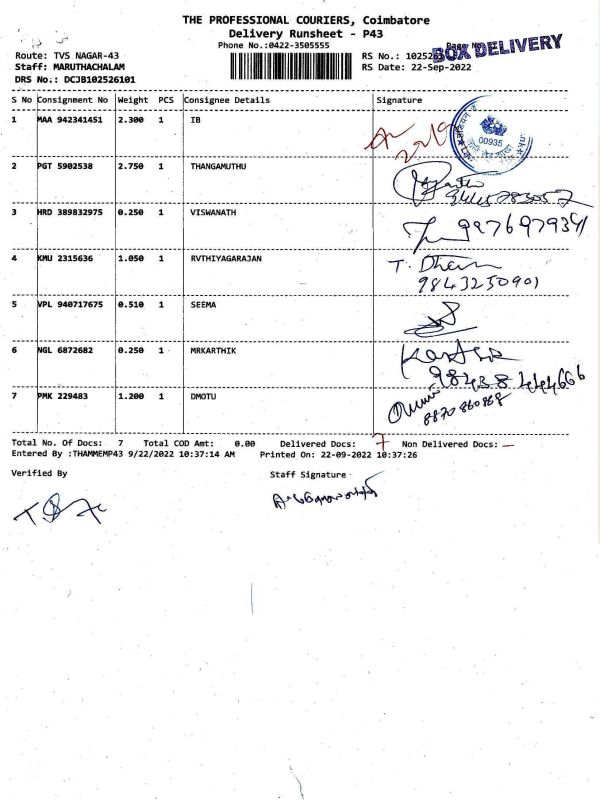 THE PROFESSIONAL COURIERS, Coimbatore
Delivery Runsheet - P43
Phone No.:0422-3505555
BOX DELIVERY
Route: TVS NAGAR-43
RS No.: 102526
Staff: MARUTHACHALAM
RS Date: 22-Sep-2022
DRS No.: DCJB102526101
S No Consignment No Weight PCS Consignee Details Signature
1 MAA 942341451 2.300 1 IB
00935
2 PGT 5902538 2.750 1 THANGAMUTHU
3 HRD 389832975 0.250 1 VISWANATH
4 KMU 2315636 1.050 1 RVTHIYAGARAJAN
9843250901
5 VPL 940717675 0.510 1 SEEMA
6 NGL 6872682 0.250 1 MRKARTHIK
98438 444666
7 PMK 229483 1.200 1 DMOTU
8870860868
Total No. Of Docs: 7 Total COD Amt: 0.00 Delivered Docs: 7 Non Delivered Docs: —
Entered By :THAMMEMP43 9/22/2022 10:37:14 AM Printed On: 22-09-2022 10:37:26
Verified By Staff Signature